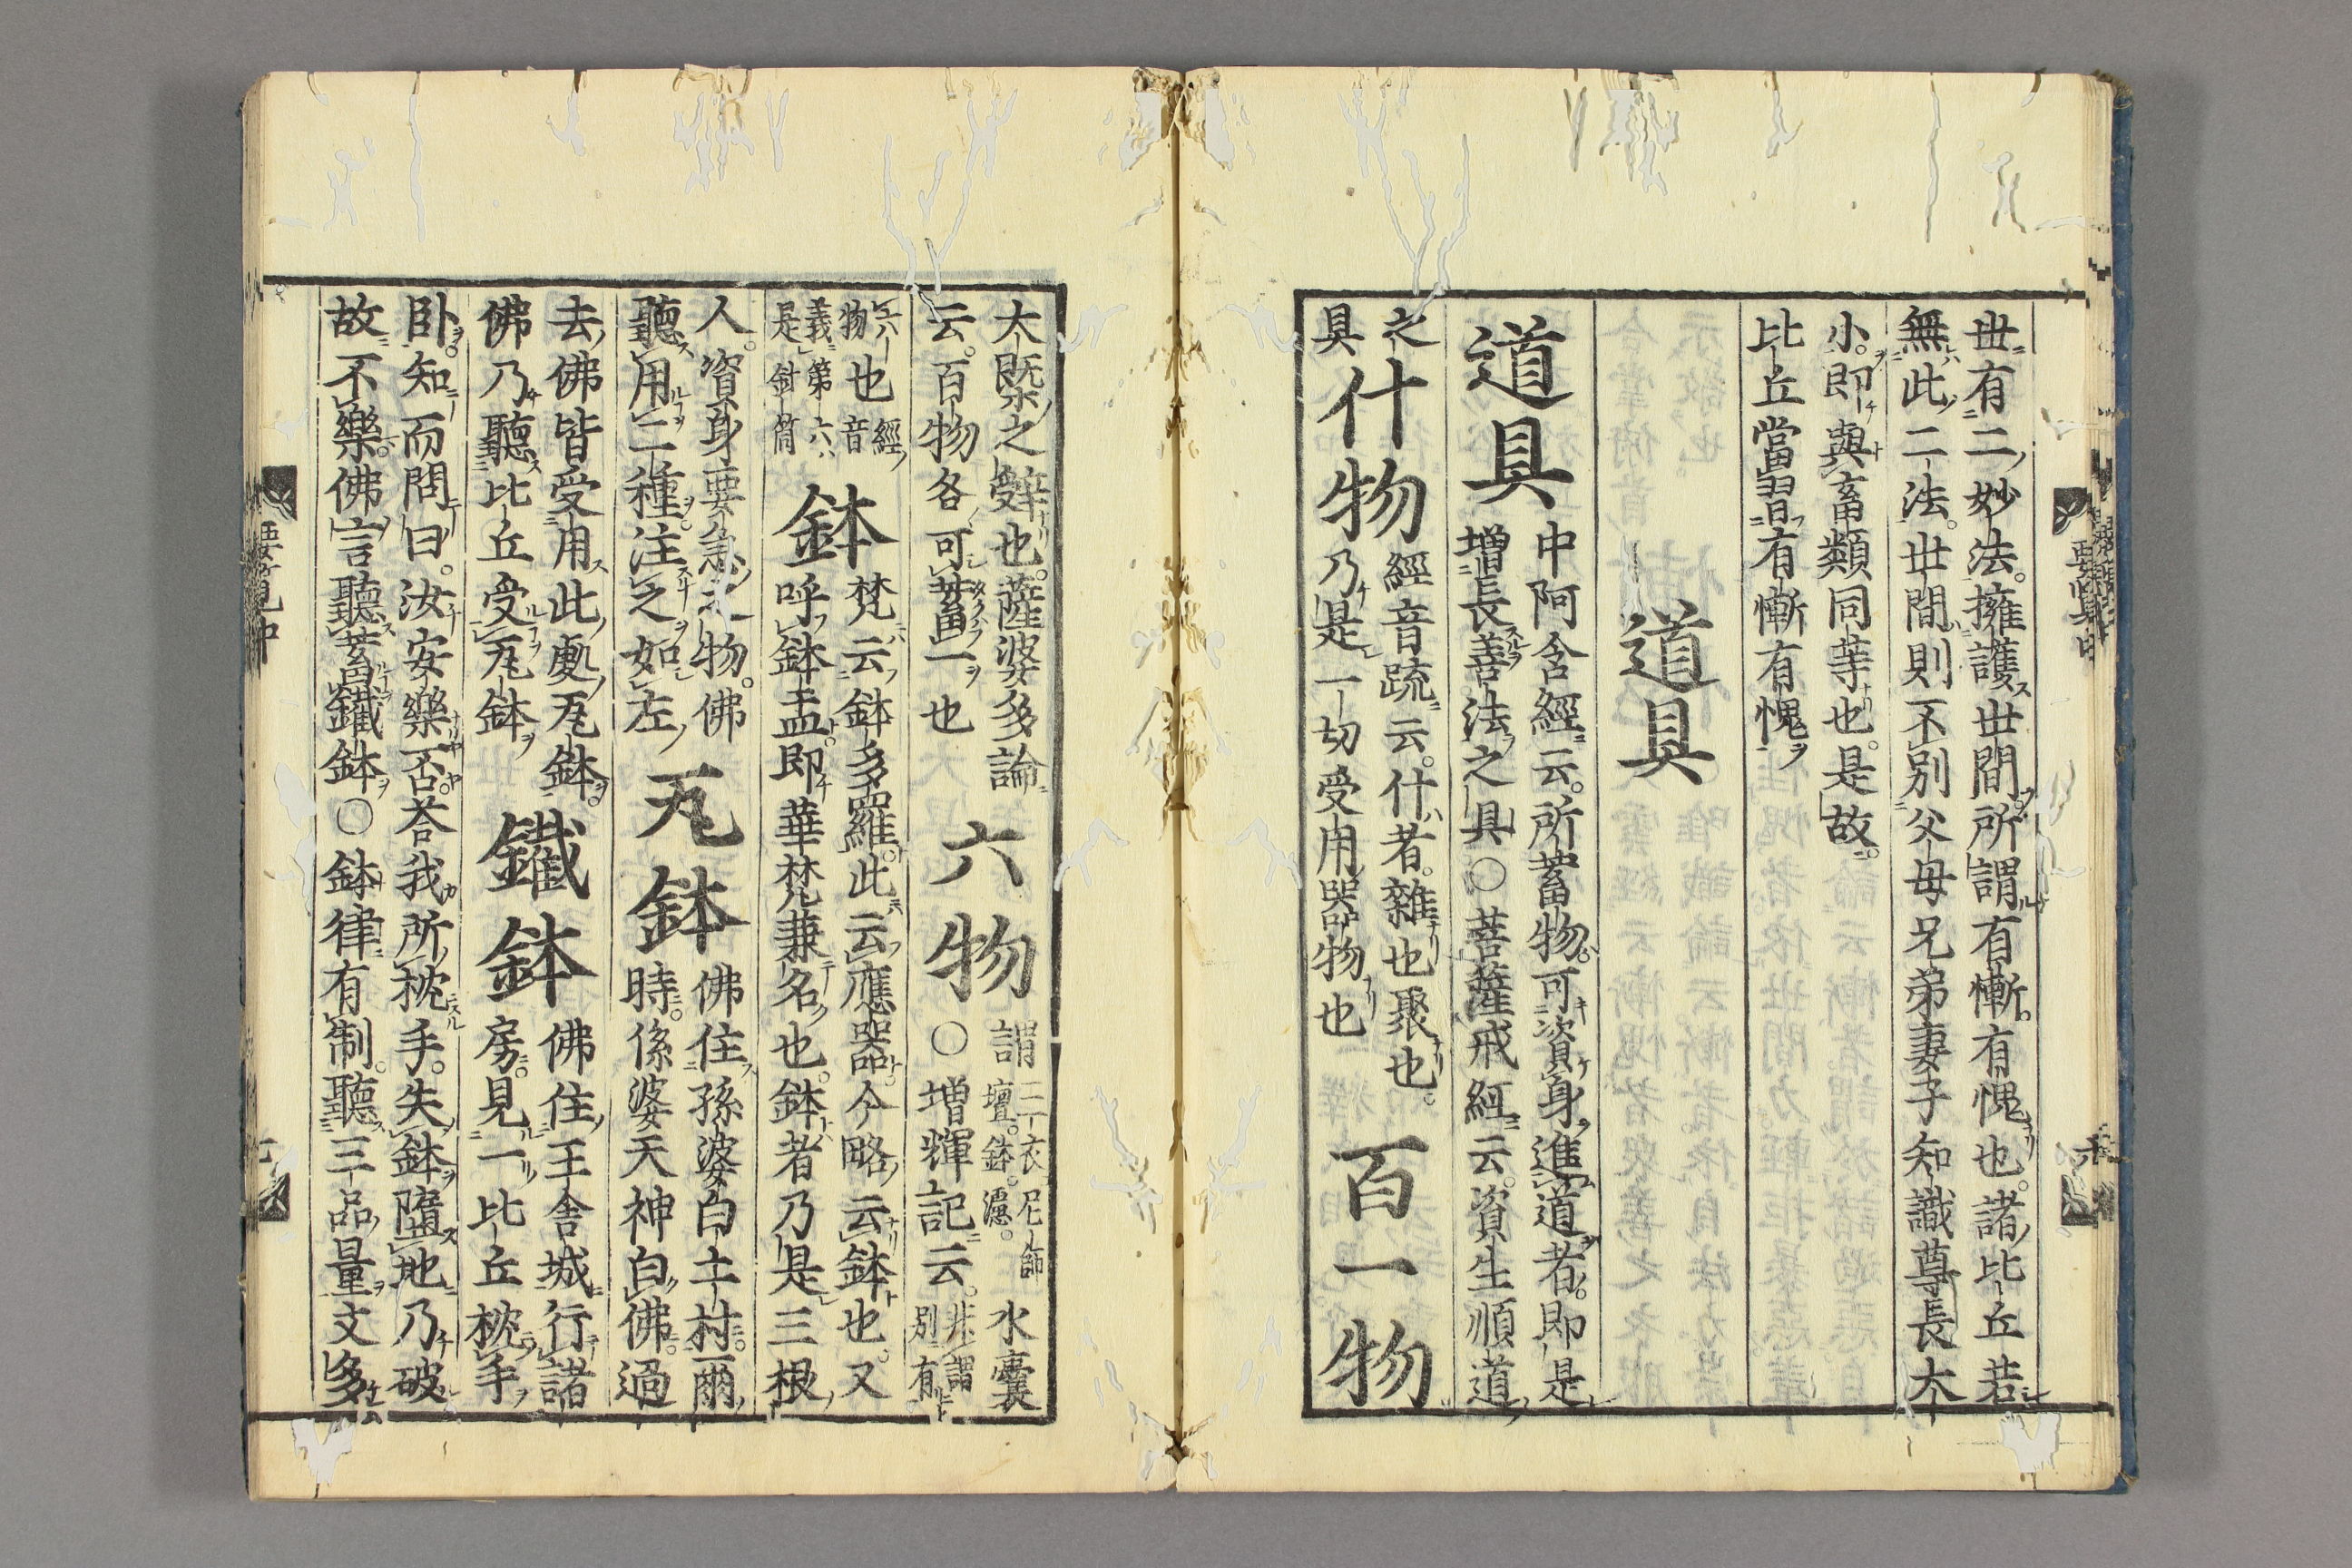 世有二妙法。擁護世間。所謂有慚。有愧也。諸比丘若
無此二法。世間則不別父母兄弟妻子知識尊長大
小。即與畜類同等也。是故。
比丘當習有慚有愧
道具
道具
中阿含經云。所蓄物。可資身。進道者。即是
增長善法之具○菩薩戒經云。資生順道
之
具
什物
經音疏云。什者。雜也聚也。
乃是一切受用器物也
百一物
大槩之辭也。薩婆多論
云。百物各可蓄一也
六物
謂
三衣尼師
壇。鉢。濾。
水囊
○增輝記云。
非謂
別有
六
物也
經音
義第六
是針筒
鉢
梵云鉢多羅。此云應器。今略云鉢也。又
呼鉢盂。即華梵兼名也。鉢者乃是三根
人。資身要急之物。佛
聽用二種。注之如左
瓦鉢
佛住孫婆白土村。爾
時。係婆天神白佛。過
去佛皆受用此處瓦鉢。
佛乃聽比丘受瓦鉢
鐵鉢
佛住王舍城。行諸
房。見一比丘枕手
臥。知而問曰。汝安樂否。荅我所枕手。失鉢墮地乃破
故不樂。佛言聽蓄鐵鉢○鉢律有制。聽三品量文多
要覽中